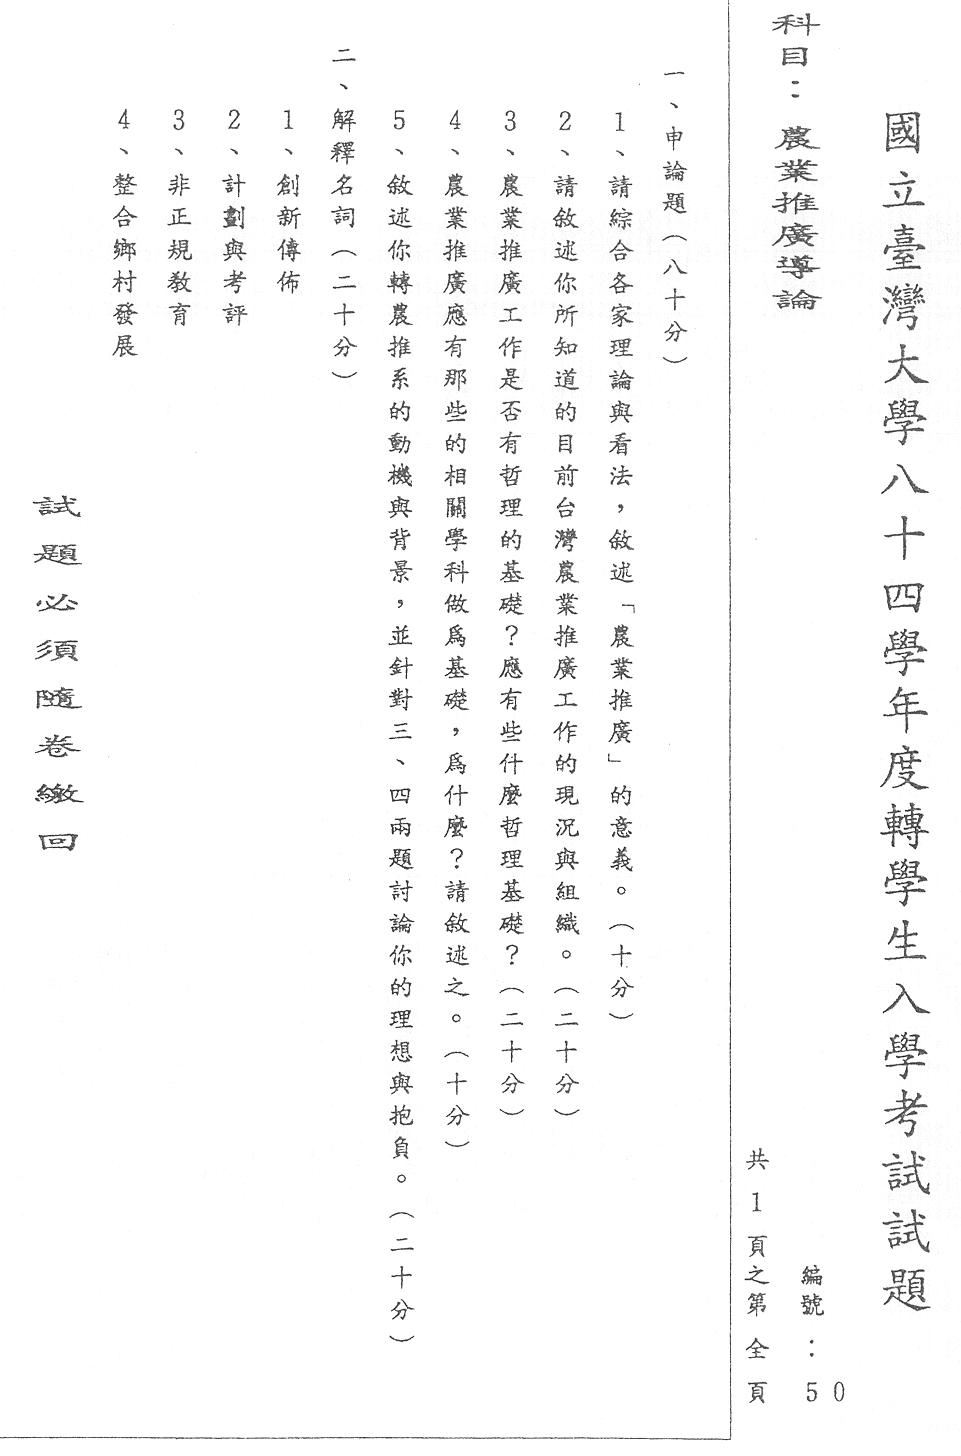 國立臺灣大學八十四學年度轉學生入學考試試題
科目：農業推廣導論
編號：50
共1頁之第全頁
一、申論題（八十分）
1、請綜合各家理論與看法，敘述「農業推廣」的意義。（十分）
2、請敘述你所知道的目前台灣農業推廣工作的現況與組織。（二十分）
3、農業推廣工作是否有哲理的基礎？應有些什麼哲理基礎？（二十分）
4、農業推廣應有那些的相關學科做為基礎，為什麼？請敘述之。（十分）
5、敘述你轉農推系的動機與背景，並針對三、四兩題討論你的理想與抱負。（二十分）
二、解釋名詞（二十分）
1、創新傳佈
2、計劃與考評
3、非正規教育
4、整合鄉村發展
試題必須隨卷繳回